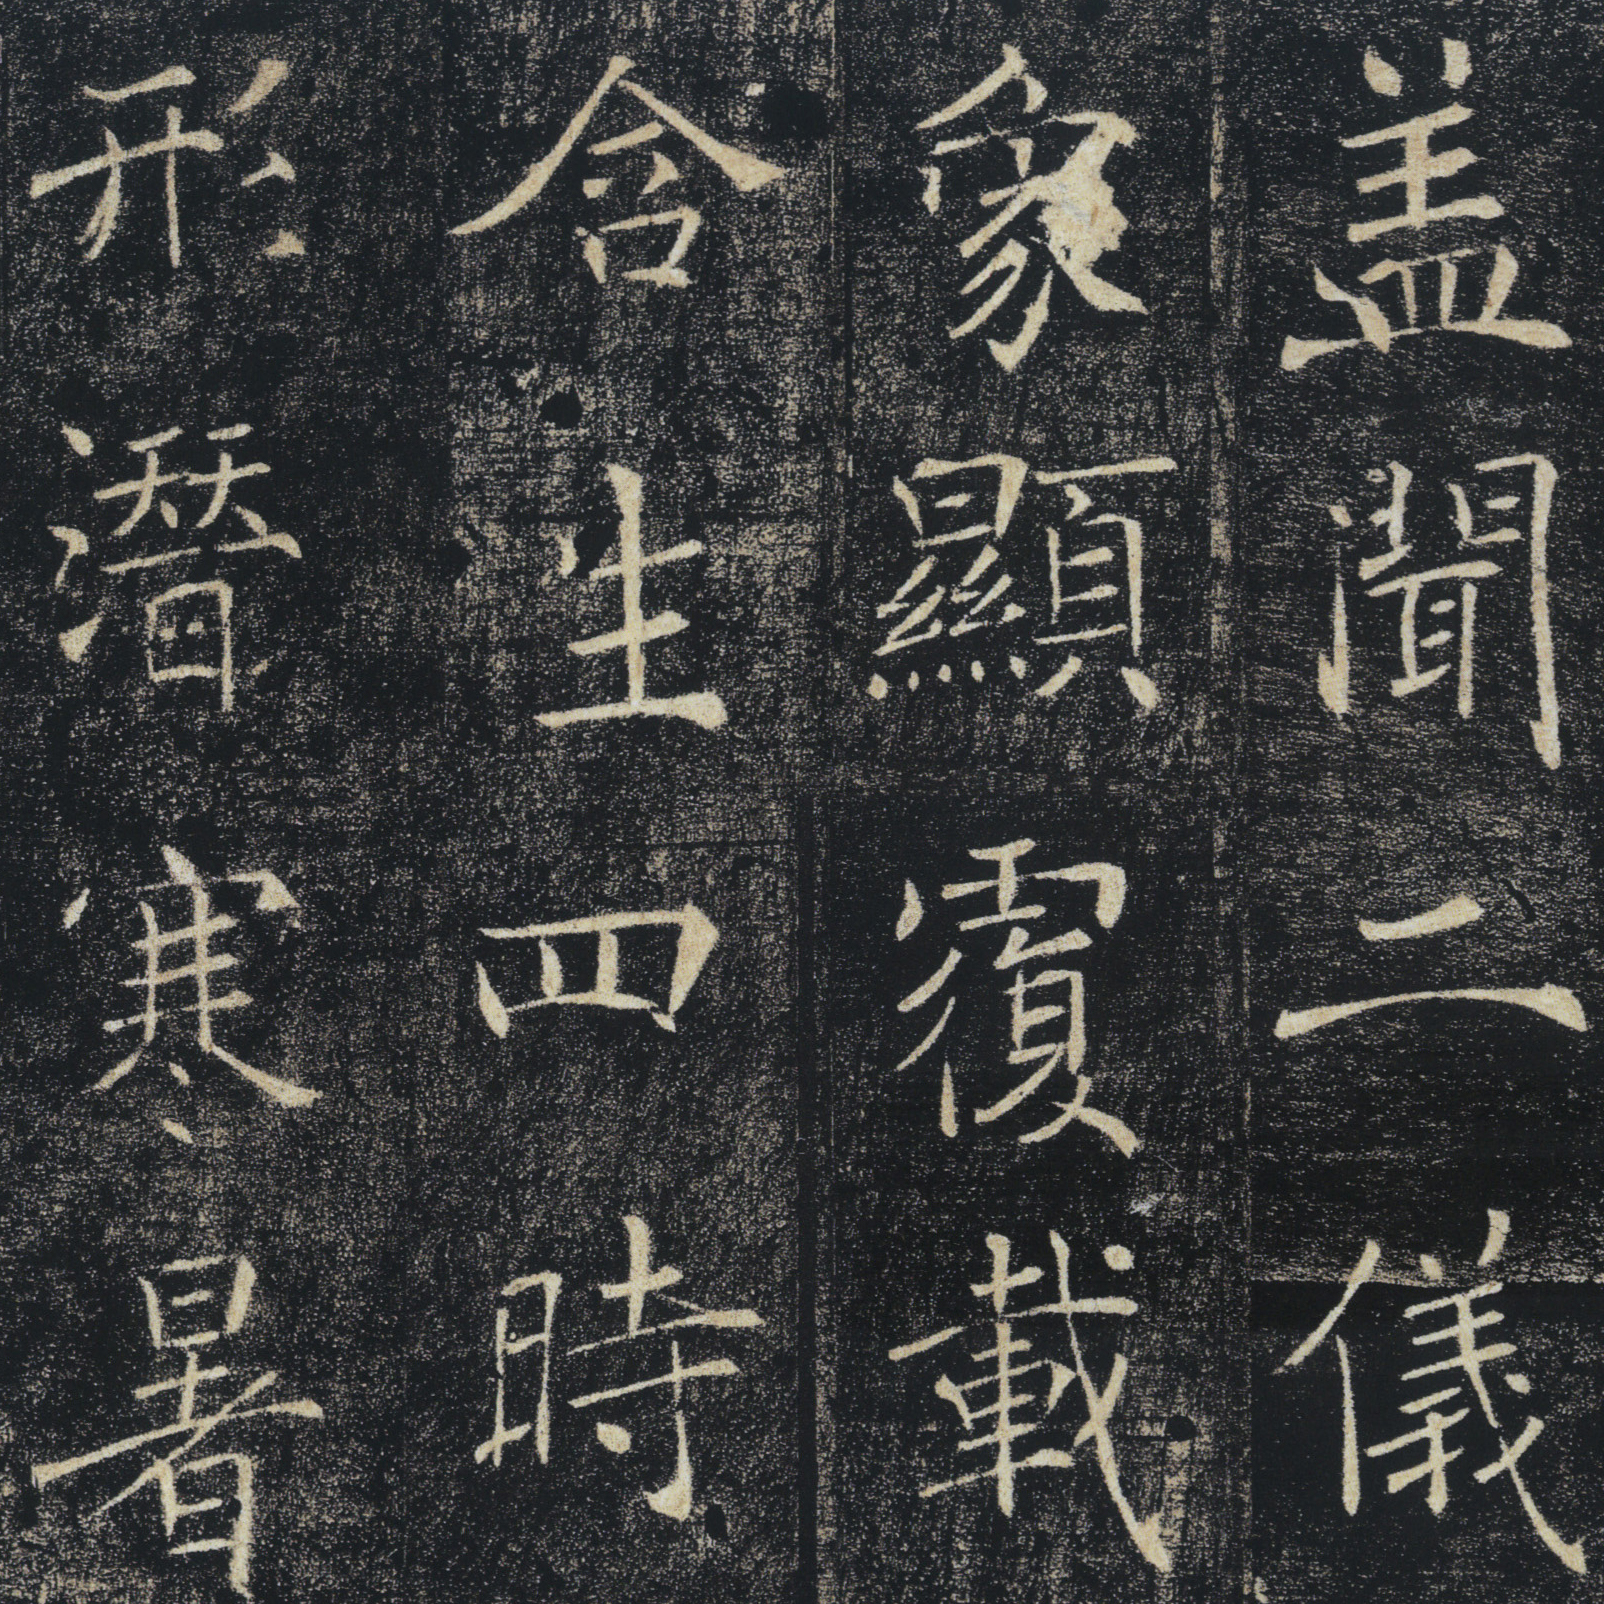 盖聞二儀
象顯覆載
含生四時
形潛寒暑